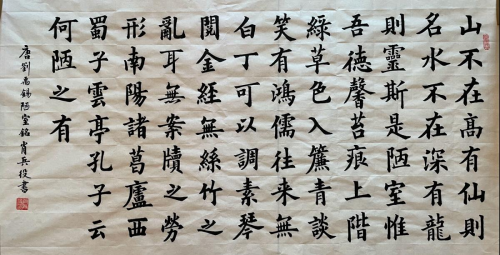 山不在高有仙則
名水不在深有龍
則靈斯是陋室惟
吾德馨苔痕上階
綠草色入簾青談
笑有鴻儒往来無
白丁可以調素琴
閱金經無絲竹之
亂耳無案牘之勞
形南陽諸葛廬西
蜀子雲亭孔子云
何陋之有
唐劉禹錫陋室銘 肖兵役書